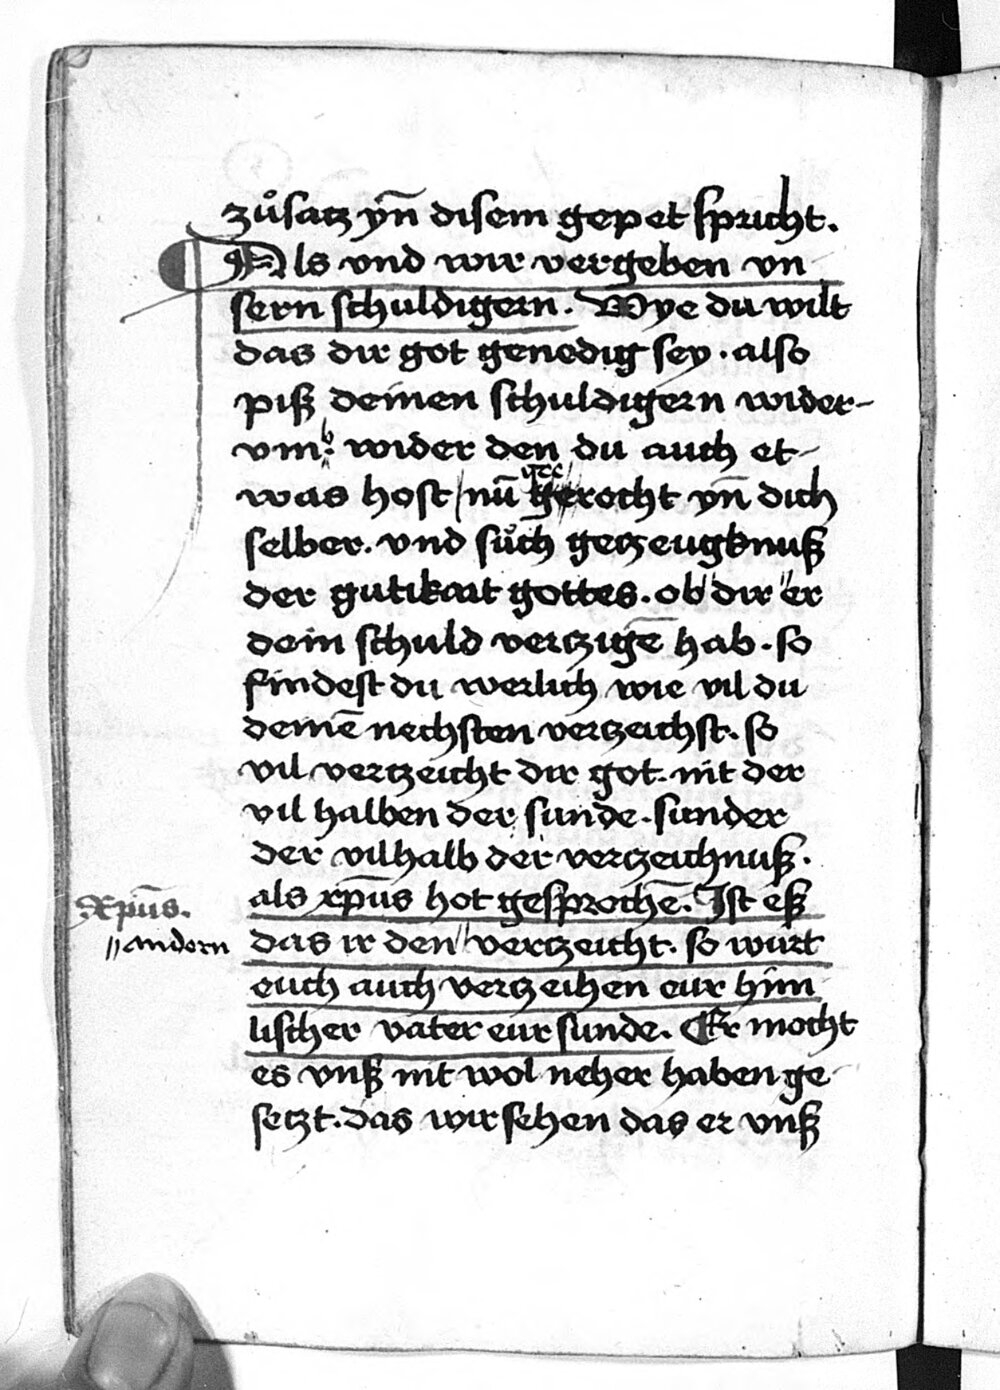 zůsatz yn̄ disem gepet spricht.
Als vnd wir vergeben vn
sern schuldigern. Wye du wilt
das dir got genedig sey. also
piß deinen schuldigern wider-
vmb. wider den du auch et-
was host nū gerecht yn̄ dich
selber. vnd sůch getzeugknuß
der gutikait gottes. ob dir er
dein schuld vertzigē hab. so
findest du werlich wie vil du
deinē nechsten vertzeichst. so
vil vertzeicht dir got. nit der
vil halben der sunde. sunder
der vilhalb der vertzeichnuß.
als xp̄us hot gesprochē. Ist eß
Xp̄us.
das ir den vertzeicht. so wurt
andern
euch auch vertzeihen eur him
lischer vater eur sunde. Er mocht
es vnß nit wol neher haben ge
setzt. das wir sehen das er vnß